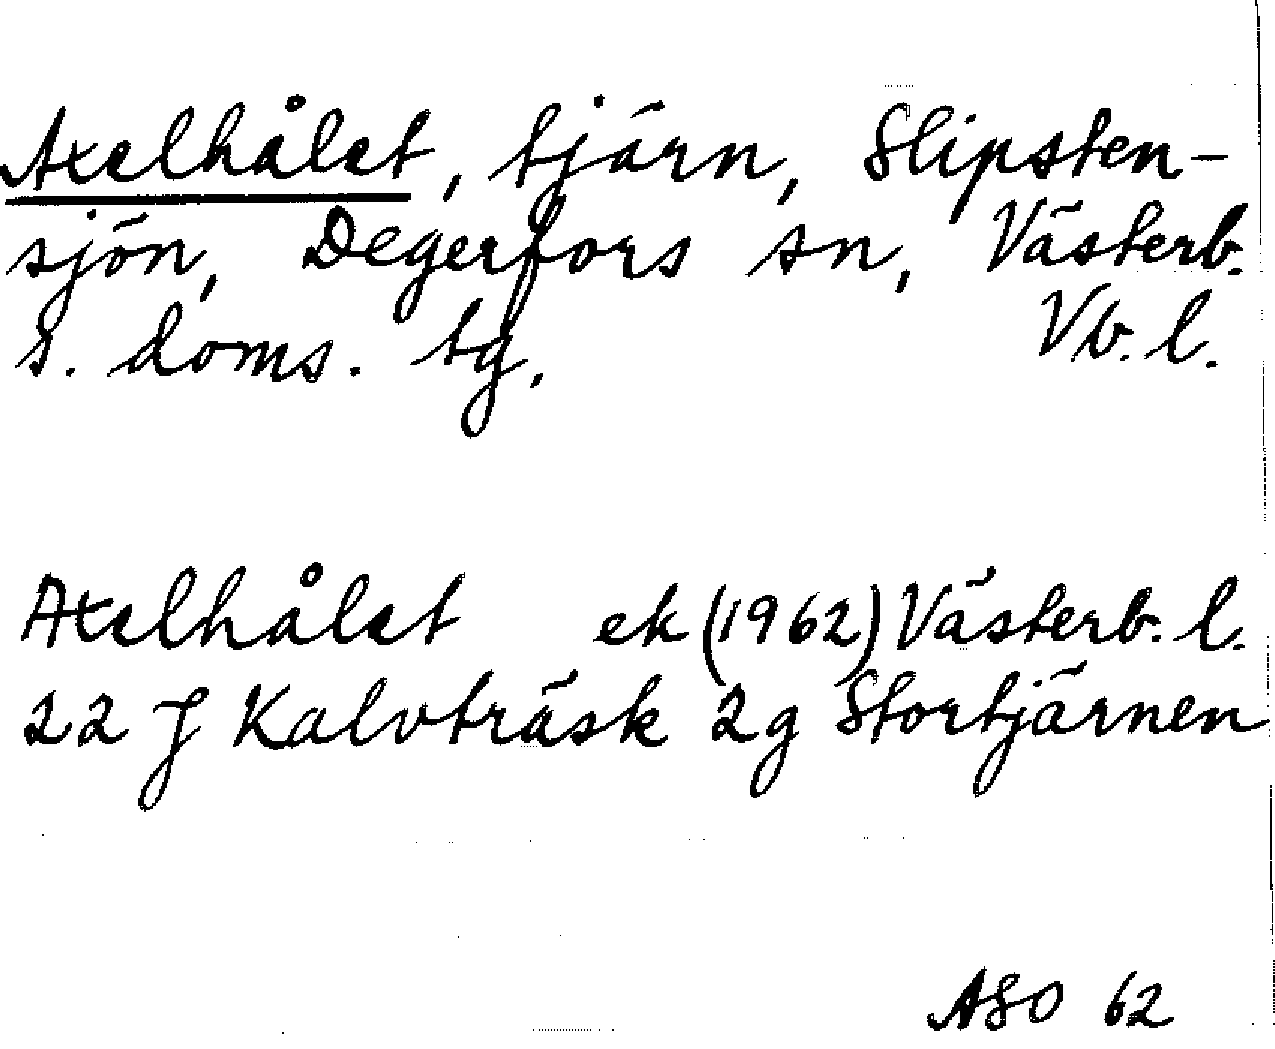 Axelhålet, tjärn, Slipsten-
sjön, Degerfors sn, Västerb.
s. doms. tg, Vb. l.
Axelhålet ek (1962) Västerb. l.
22 J Kalvträsk 2g Stortjärnen
ASO 62